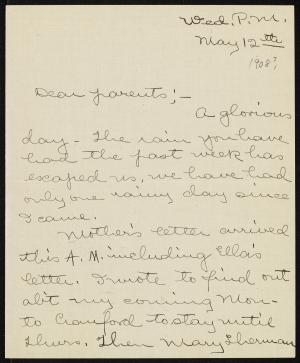 Wed. P.M.
May 12th
1908?
Dear parents;—
A glorious
day - The rain you have
had the past week has
escaped us, we have had
only one rainy day since
I came.
Mother's letter arrived
this A.M. including Ella's
letter. I wrote to find out
ab't my coming Mon-
to Cranford to stay until
Thurs. Then Mary Sherman